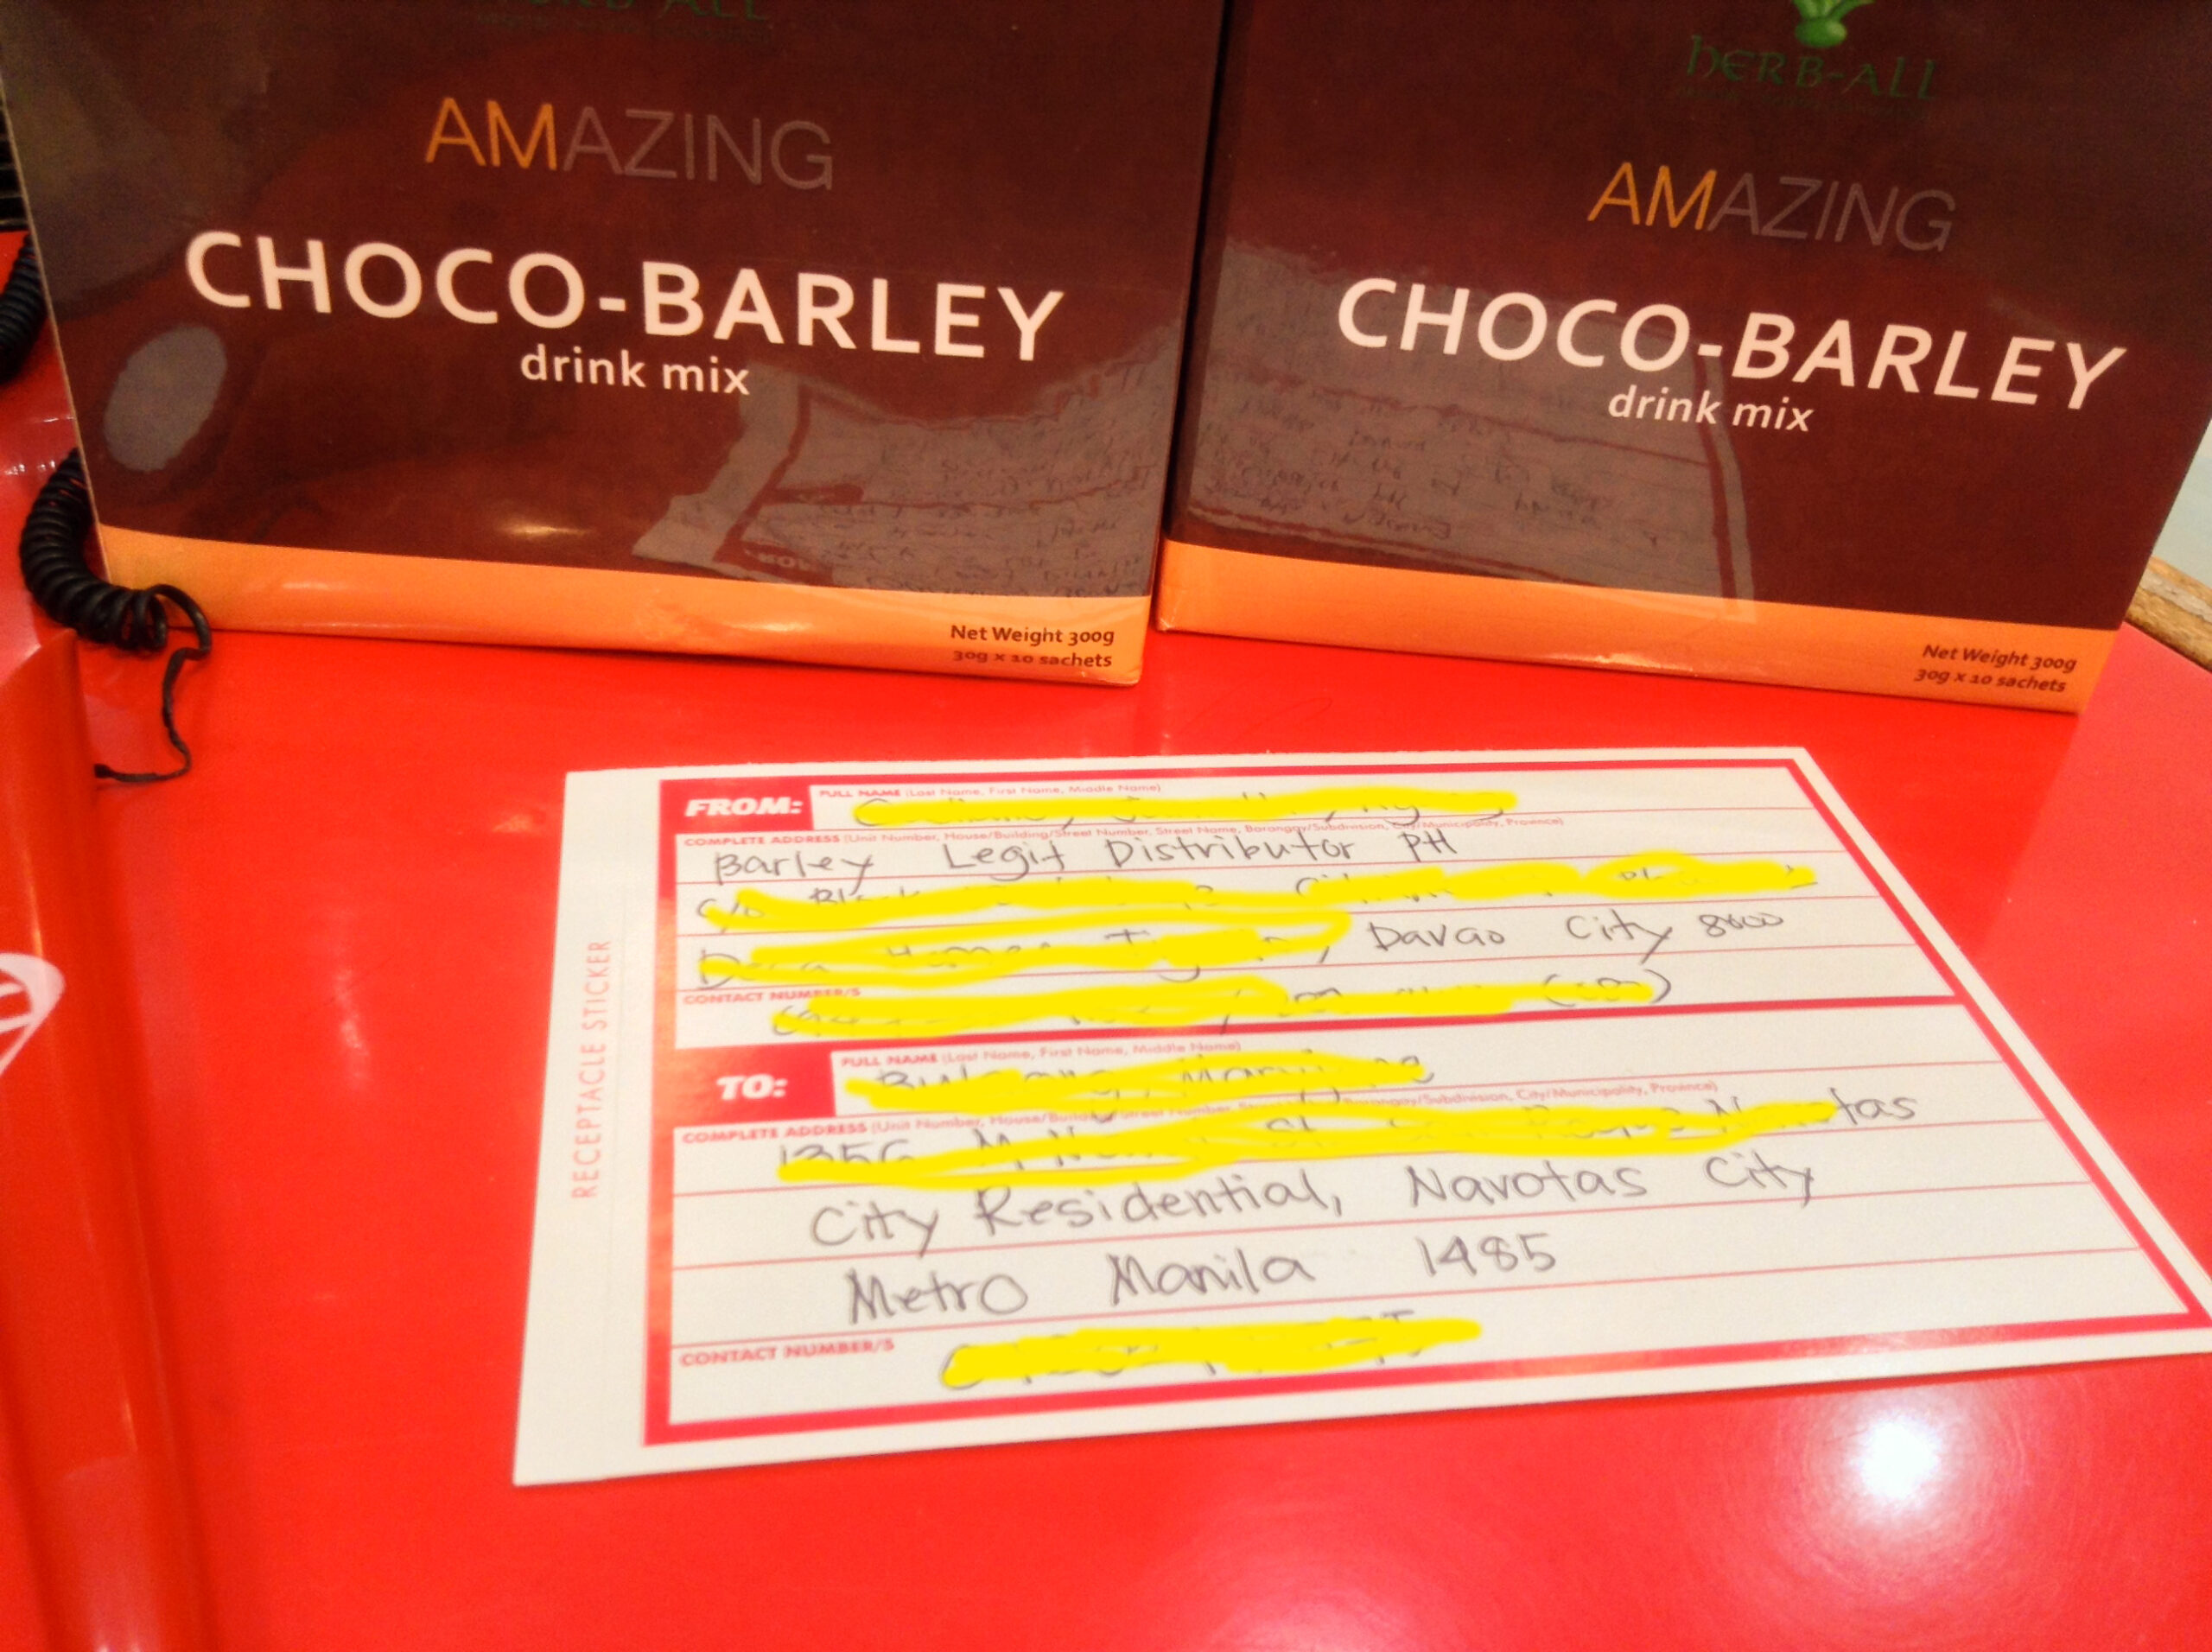 HERB-ALL
AMAZING
CHOCO-BARLEY
drink mix
Net Weight 300g
30g x 10 sachets
HERB-ALL
AMAZING
CHOCO-BARLEY
drink mix
Net Weight 300g
30g x 10 sachets
RECEPTACLE STICKER
FROM:
FULL NAME (Last Name, First Name, Middle Name)
COMPLETE ADDRESS (Unit Number, House/Building/Street Number, Street Name, Barangay/Subdivision, City/Municipality, Province)
Barley Legit Distributor PH
c/o
Davao City 8000
CONTACT NUMBER/S
TO:
FULL NAME (Last Name, First Name, Middle Name)
COMPLETE ADDRESS (Unit Number, House/Building/Street Number, Barangay/Subdivision, City/Municipality, Province)
City Residential, Navotas City
Metro Manila 1485
CONTACT NUMBER/S